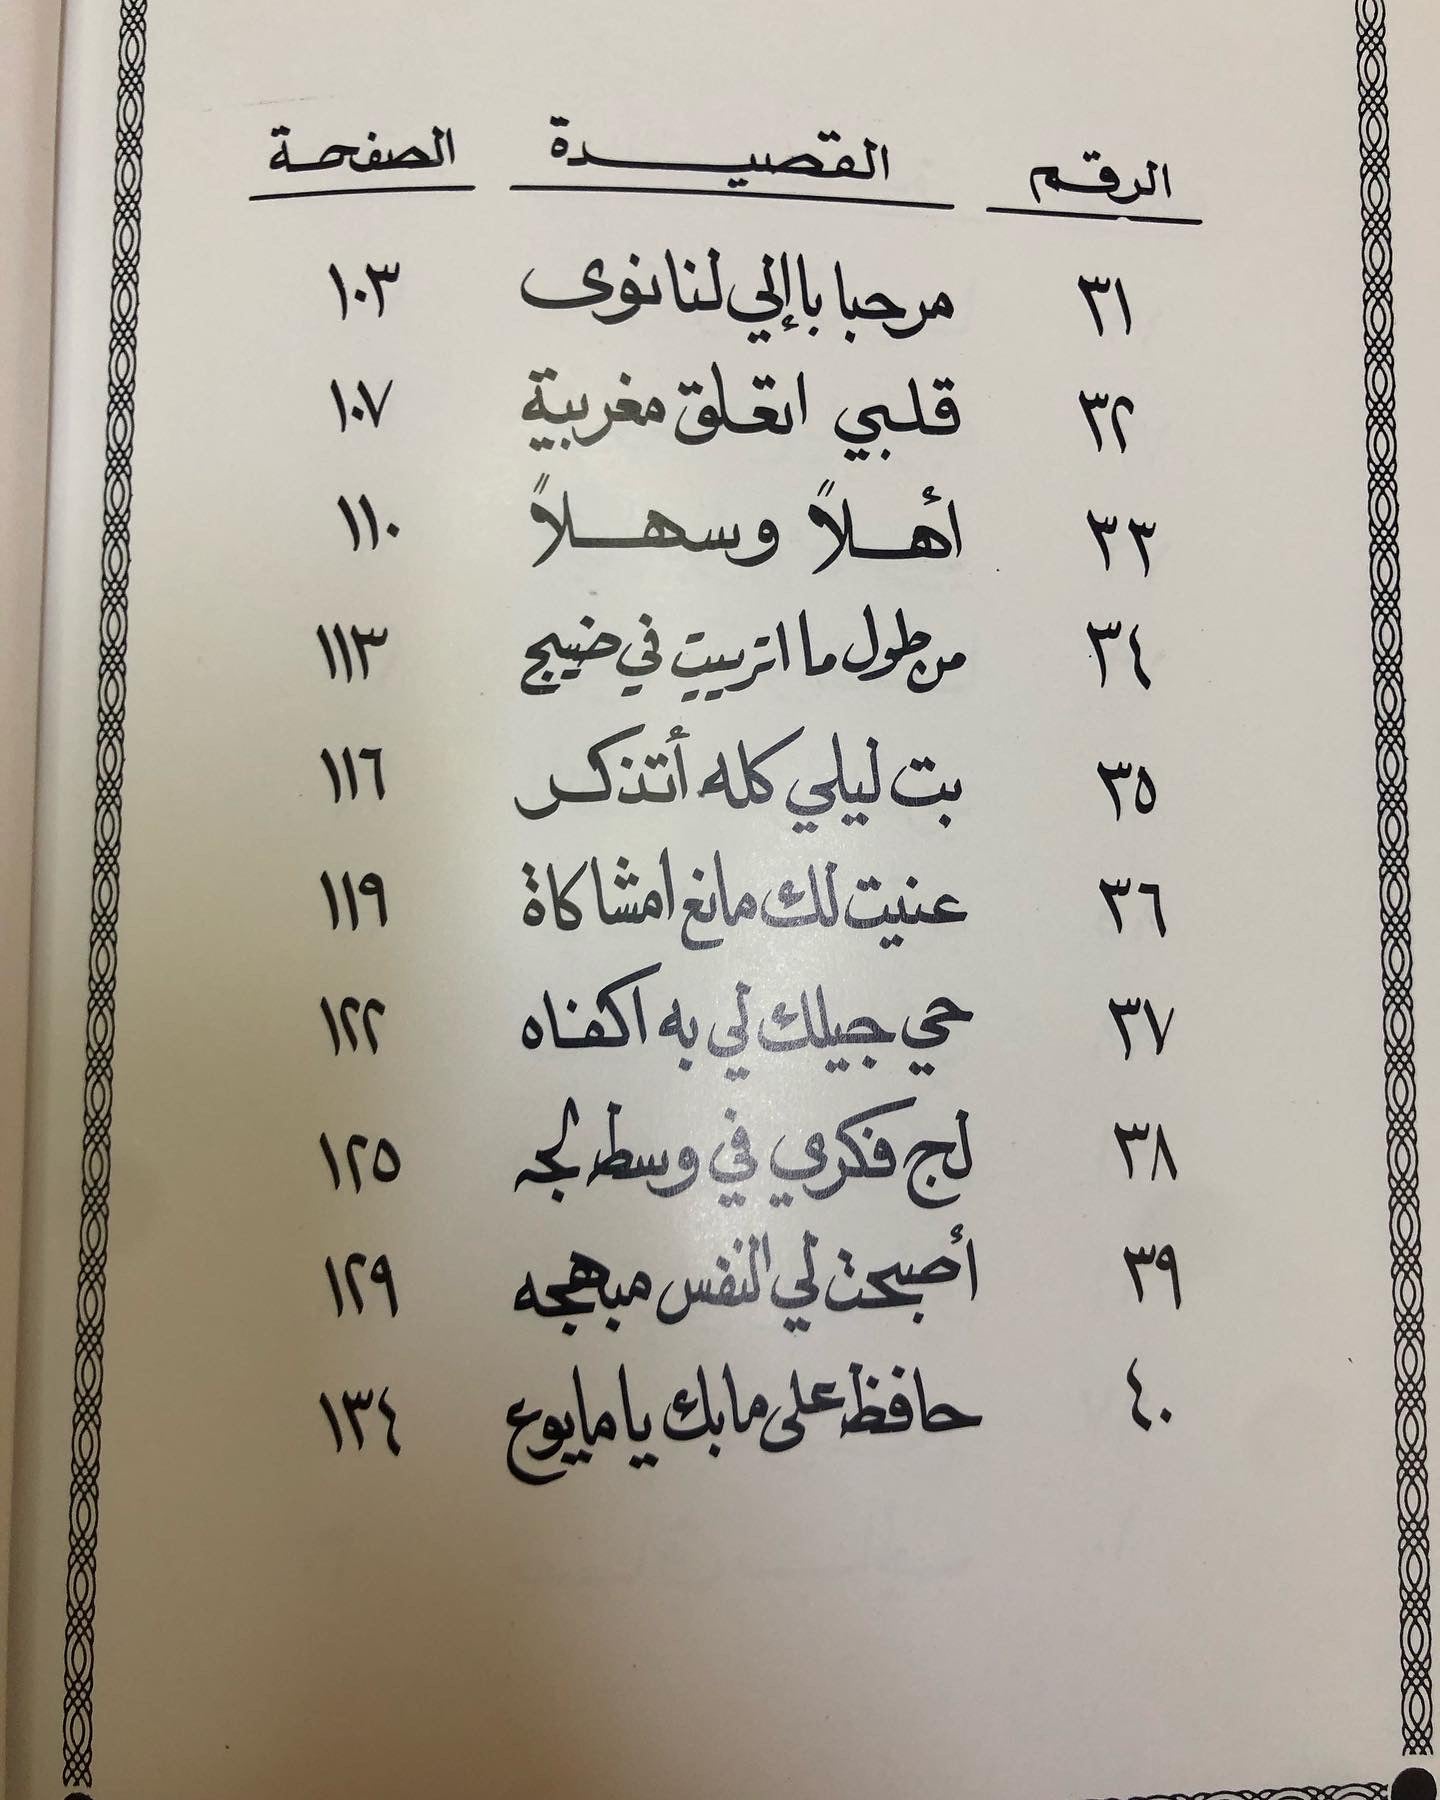 الرقم القصيدة الصفحة
٣١ مرحبا باإلي لنا نوى ١٠٣
٣٢ قلبي اتعلق مغربية ١٠٧
٣٣ أهلاً وسهلاً ١١٠
٣٤ من طول ما اتربيت في ضييج ١١٣
٣٥ بت ليلي كله أتذكر ١١٦
٣٦ عنيت لك مانغ امشاكاة ١١٩
٣٧ حي جيلك لي به اكفاه ١٢٢
٣٨ لج فكري في وسط لجه ١٢٥
٣٩ أصبحت لي النفس مبهجه ١٢٩
٤٠ حافظ على مابك يا مايوع ١٣٤